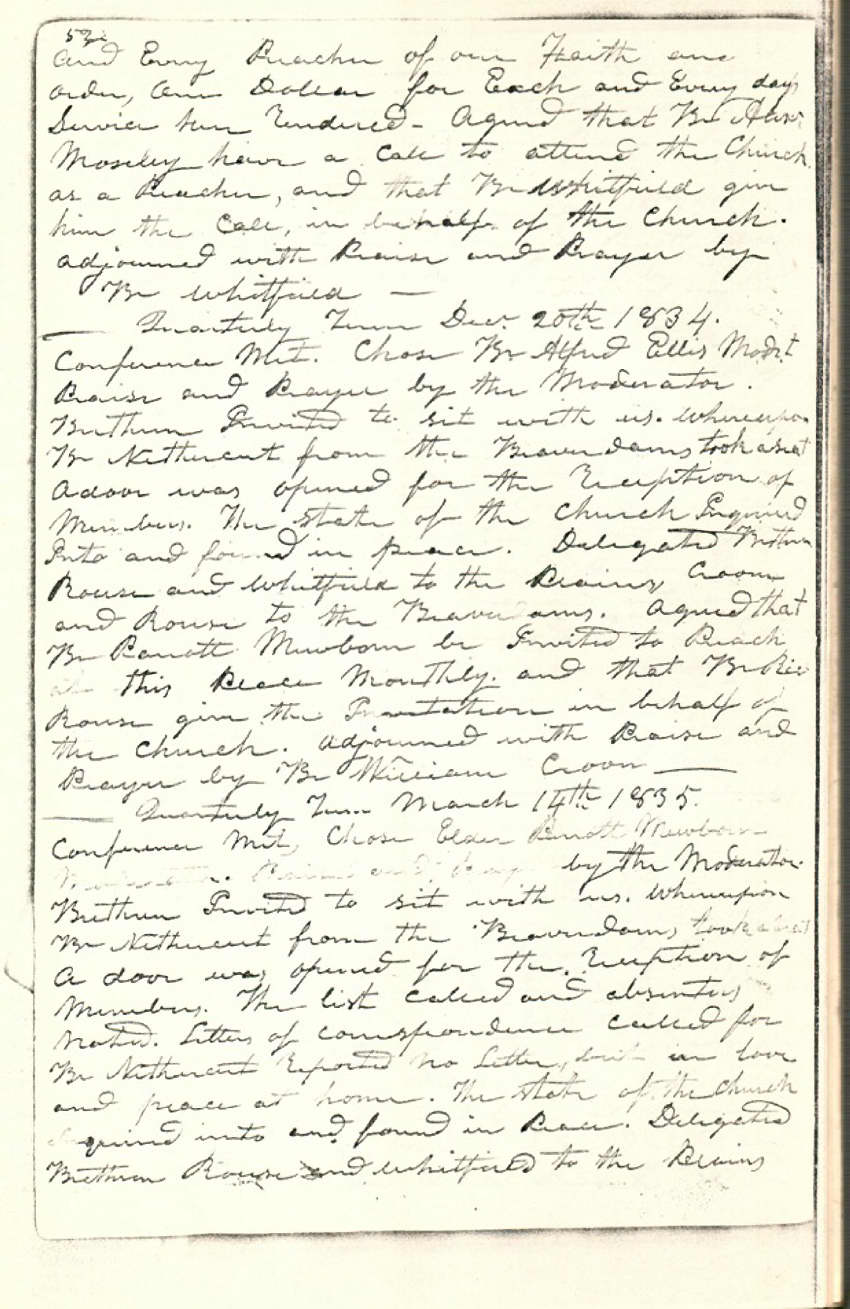 53
and Every Preacher of our Faith and
order, One Dollar for Each and Every days
Service hear Rendered - Agreed that Br
Moseley have a Call to attend the Church
as a Preacher, and that Br Whitfield give
him the Call, in behalf of the Church.
adjourned with Praise and Prayer by
Br Whitfield —
— Quarterly Term Decr. 20th 1834.
Conference Met. Chose Br Alfred Ellis Modrt
Praise and Prayer by the Moderator.
Brethren Invited to sit with us. Whereupon
Br Nethercut from the Beaverdams took a seat
A door was opened for the Reception of
Members. The state of the Church Inquired
Into and found in peace. Delegated Brethren
Rouse and Whitfield to the Plains, Croom
and Rouse to the Beaverdams. Agreed that
Br Parrott Mewborn be Invited to Preach
at this Place Monthly. and that Br
Rouse give the Invitation in behalf of
the Church. adjourned with Praise and
Prayer by Br William Croom —
— Quarterly Term March 14th 1835.
Conference Met, Chose Elder Parrott Mewborn
Moderator. Praise and Prayer by the Moderator.
Brethren Invited to sit with us. Whereupon
Br Nethercut from the Beaverdams took a seat
A door was opened for the Reception of
Members. The list Called and absentees
Noted. Letters of Correspondence Called for
Br Nethercut Reported No Letter, but in love
and peace at home. The state of the Church
Inquired into and found in Peace. Delegated
Brethren Rouse and Whitfield to the Plains